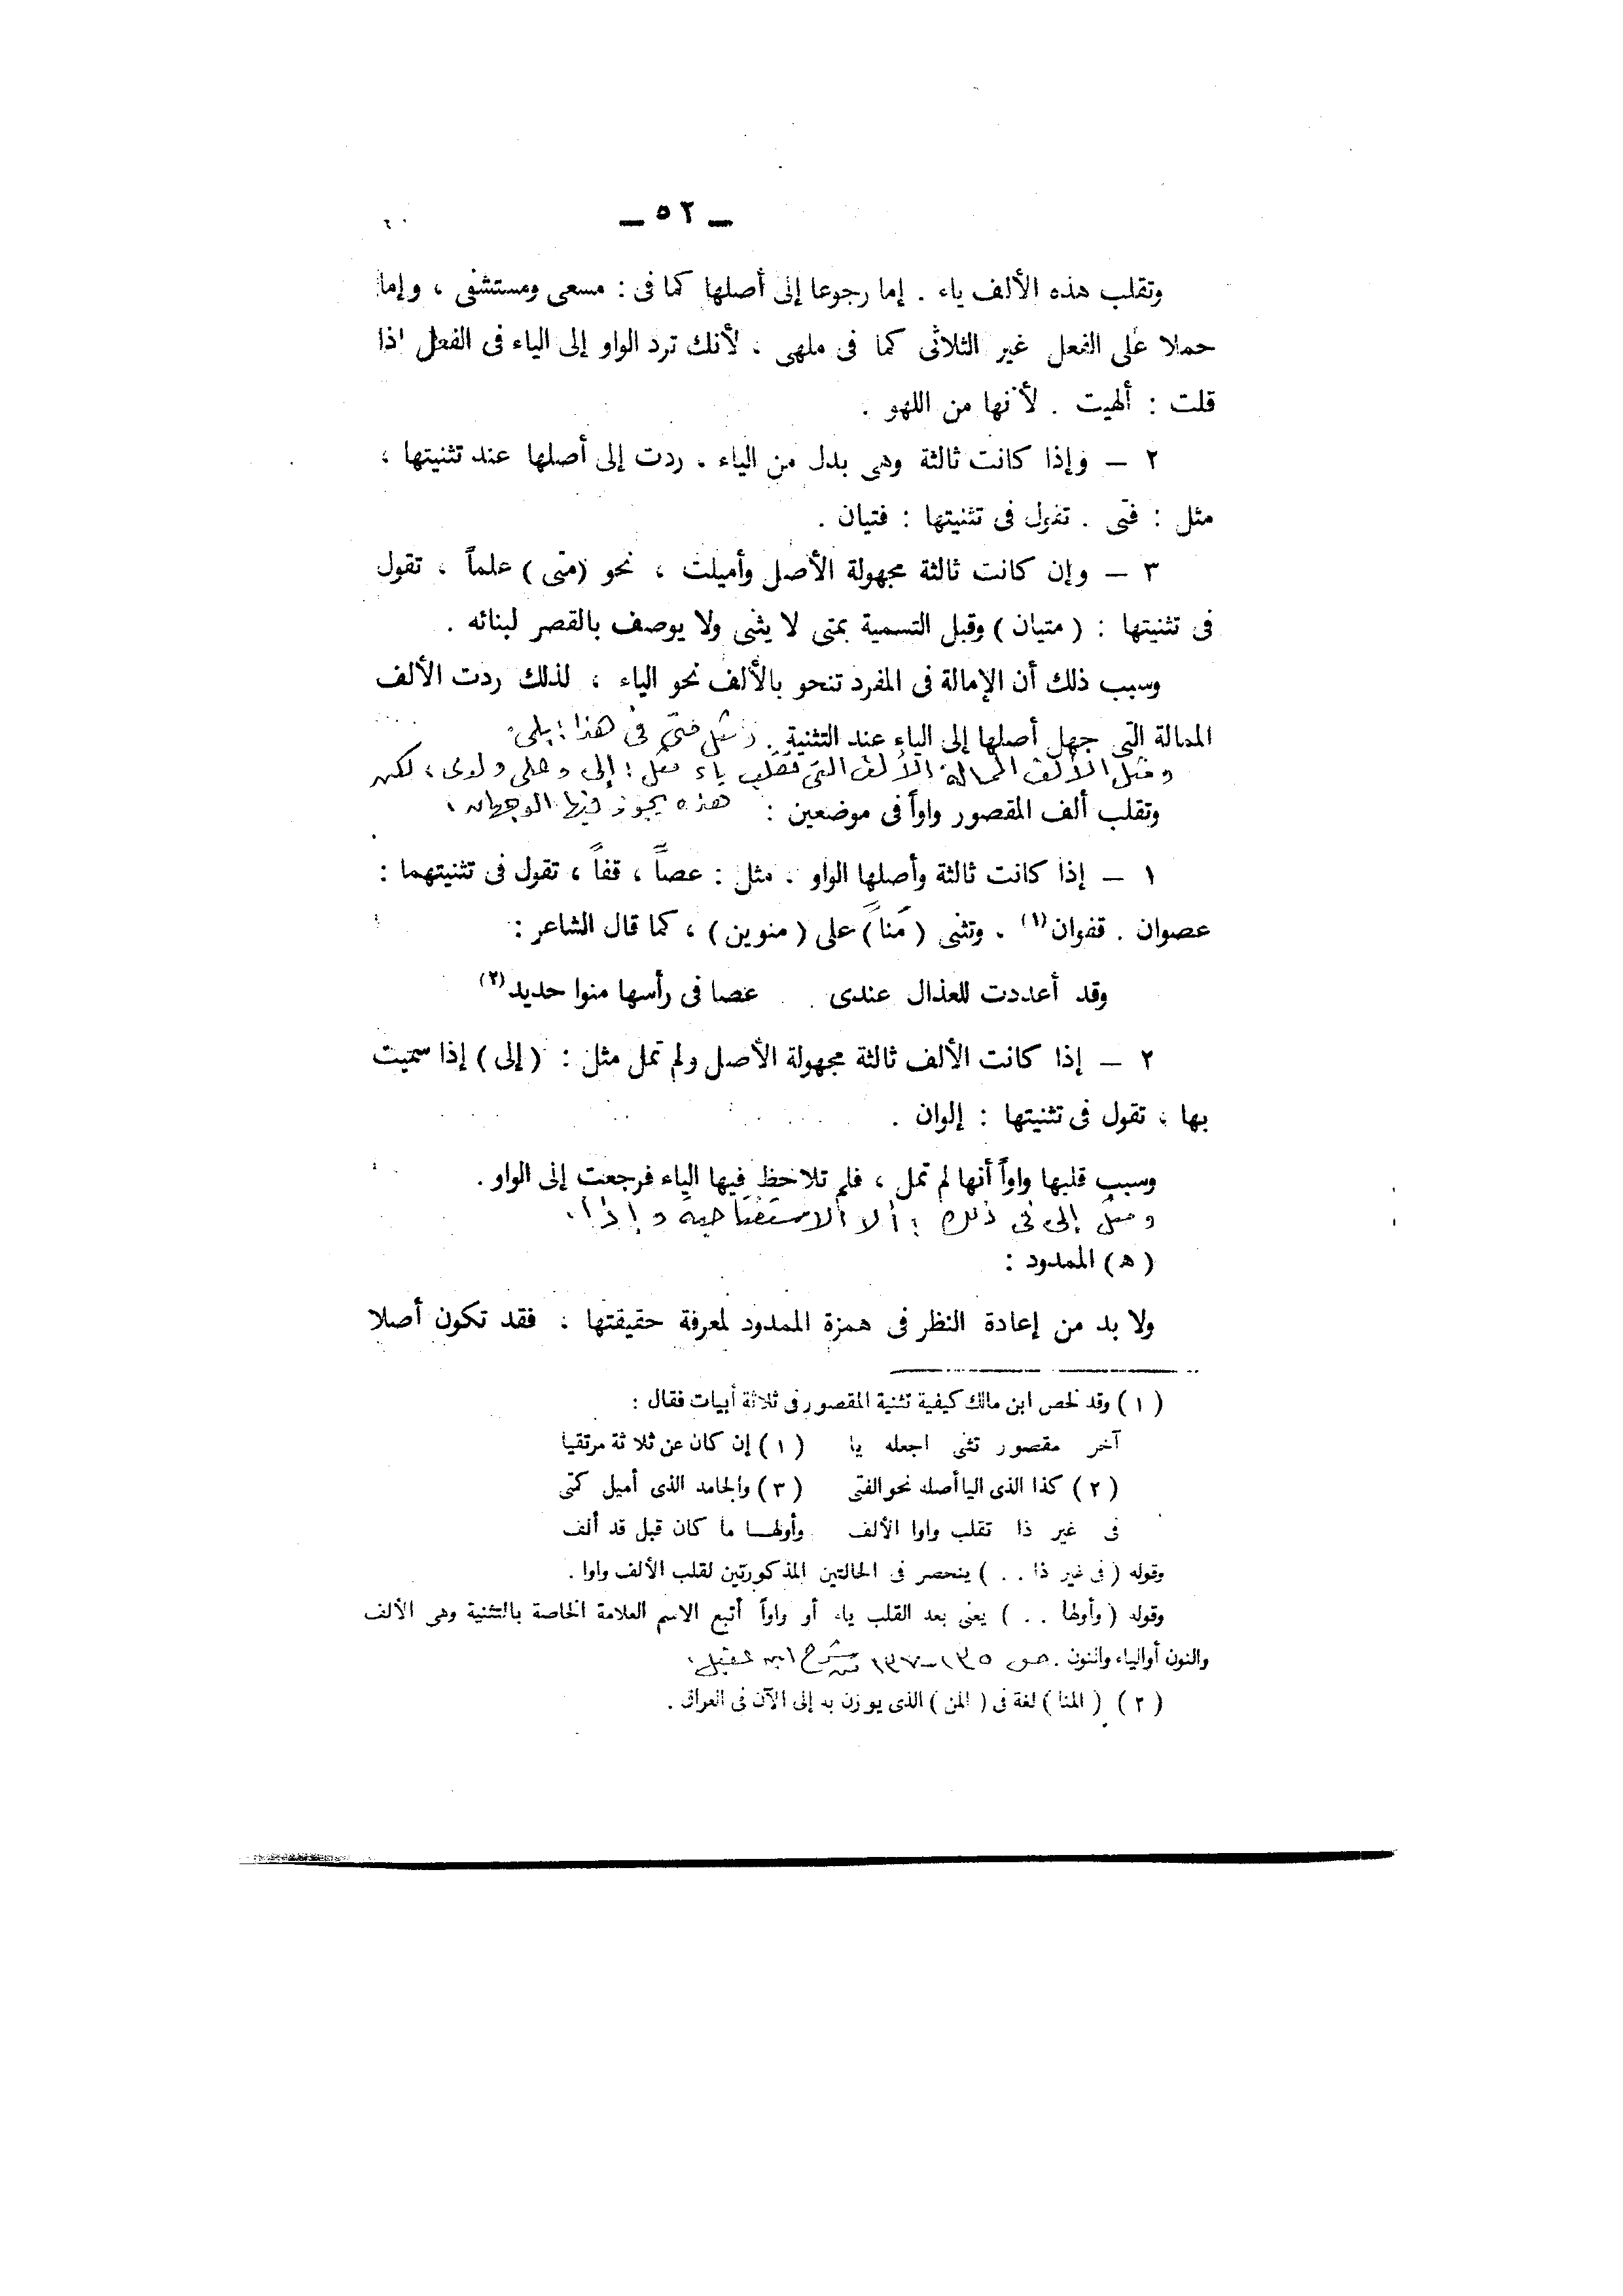 ــ ٥٢ ــ
وتقلب هذه الألف ياء . إما رجوعا إلى أصلها كما فى : مسعى ومستشفى ، وإما
حملا على الفعل غير الثلاثى كما فى ملهى ، لأنك ترد الواو إلى الياء فى الفعل اذا
قلت : ألهيت . لأنها من اللهو .
٢ – وإذا كانت ثالثة وهى بدل من الياء ، ردت إلى أصلها عند تثنيتها ،
مثل : فتى . تقول فى تثنيتها : فتيان .
٣ – وإن كانت ثالثة مجهولة الأصل وأميلت ، نحو (متى) علماً ، تقول
فى تثنيتها : ( متيان ) وقبل التسمية بمتى لا يثنى ولا يوصف بالقصر لبنائه .
وسبب ذلك أن الإمالة فى المفرد تنحو بالألف نحو الياء ، لذلك ردت الألف
الممالة التى جهل أصلها إلى الياء عند التثنية . ومثل متى فى هذا : بلى
ومثل الألف الممالة الألف التى تقلب ياء مثل : إلى وعلى ولدى ، لكن
وتقلب ألف المقصور واواً فى موضعين : هذه يجوز فيها الوجهان .
١ – إذا كانت ثالثة وأصلها الواو . مثل : عصاً ، قفاً ، تقول فى تثنيتهما :
عصوان . قفوان (١) . وتثنى ( مَناً ) على ( منوين ) ، كما قال الشاعر :
وقد أعددت للعذال عندى عصا فى رأسها منوا حديد (٢)
٢ – إذا كانت الألف ثالثة مجهولة الأصل ولم تمل مثل : ( إلى ) إذا سميت
بها ، تقول فى تثنيتها : إلوان .
وسبب قلبها واواً أنها لم تمل ، فلم تلاحظ فيها الياء فرجعت إلى الواو .
ومثل إلى فى ذلك : ألا الاستفتاحية وإذا .
( ه ) الممدود :
ولا بد من إعادة النظر فى همزة الممدود لمعرفة حقيقتها ، فقد تكون أصلا
( ١ ) وقد لخص ابن مالك كيفية تثنية المقصور فى ثلاثة أبيات فقال :
آخر مقصور تثنى اجعله يا ( ١ ) إن كان عن ثلاثة مرتقيا
( ٢ ) كذا الذى اليا أصله نحو الفتى ( ٣ ) والجامد الذى أميل كمتى
فى غير ذا تقلب واوا الألف وأولها ما كان قبل قد ألف
وقوله ( فى غير ذا . . ) ينحصر فى الحالتين المذكورتين لقلب الألف واوا .
وقوله ( وأولها . . ) يعنى بعد القلب ياء أو واواً أتبع الاسم العلامة الخاصة بالتثنية وهى الألف
والنون أو الياء والنون . ص ١٣٥ – ١٣٧ من شرح ابن عقيل .
( ٢ ) ( المنا ) لغة فى ( المن ) الذى يوزن به إلى الآن فى العراق .